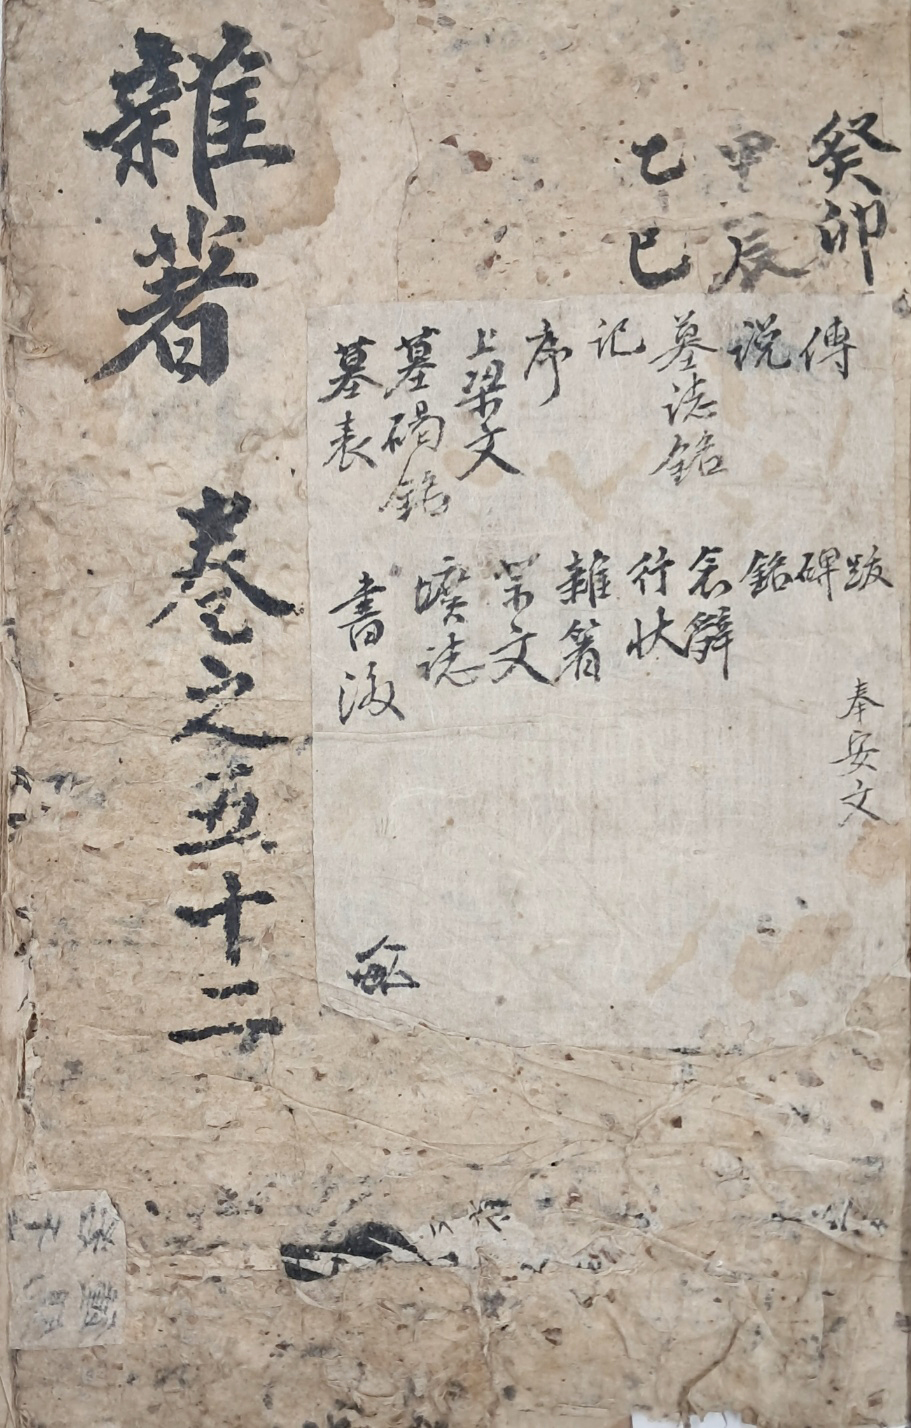 癸卯
甲辰
乙巳
傳
說
墓誌銘
記
序
上梁文
墓碣銘
墓表
跋
碑
銘
哀辭
行狀
雜著
祭文
壙誌
書後
奉安文
雜著 卷之五十二